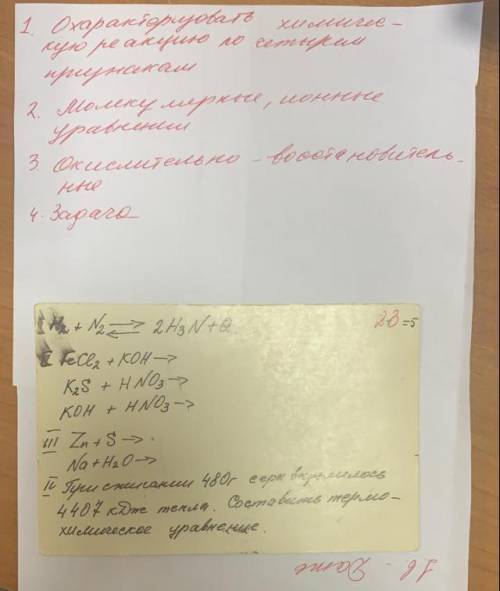 1. Охарактеризовать химичес-
кую реакцию по четырем
признакам
2. Молекулярные, ионные
уравнении
3. Окислительно-восстановитель-
ные
4. Задача
I H2 + N2 ⇌ 2H3N + Q
23=5
II FeCl2 + KOH →
K2S + HNO3 →
KOH + HNO3 →
III Zn + S →
Na + H2O →
IV При сжигании 480г серы выделилось
4407 кДж тепла. Составить термо-
химическое уравнение.